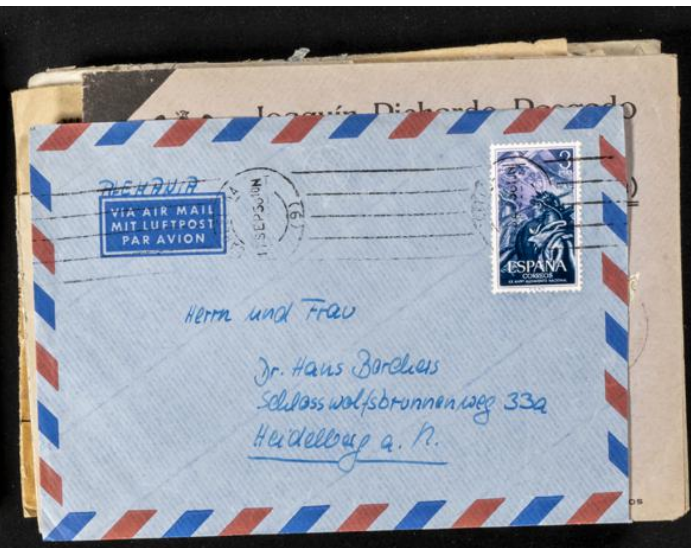 Joaquín
ALEMANIA
VIA AIR MAIL
MIT LUFTPOST
PAR AVION
SEP
(6)
3
PTS
ESPAÑA
CORREOS
Herrn und Frau
Dr. Hans Borchers
Schlosswolfsbrunnenweg 33a
Heidelberg a. N.
OS